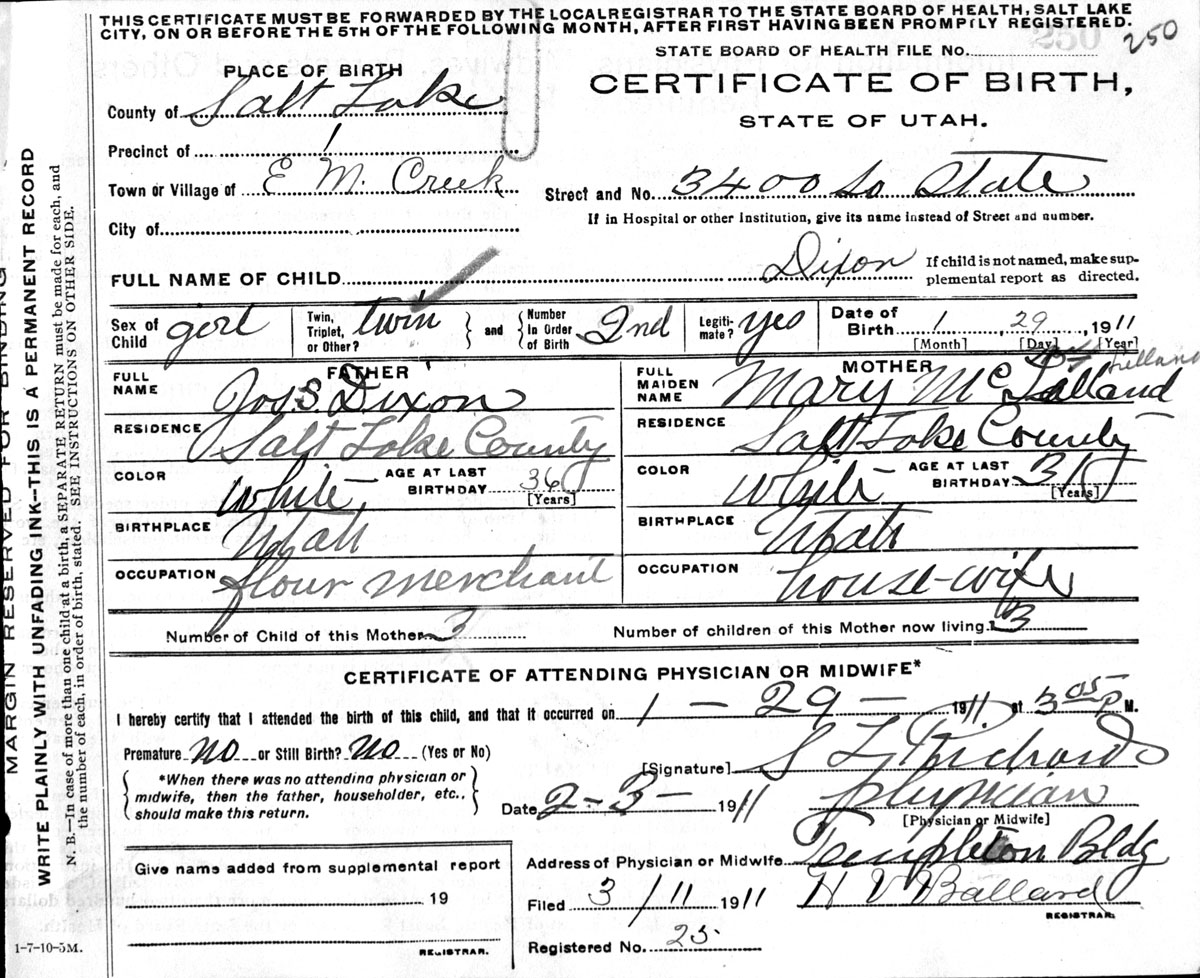 THIS CERTIFICATE MUST BE FORWARDED BY THE LOCAL REGISTRAR TO THE STATE BOARD OF HEALTH, SALT LAKE
CITY, ON OR BEFORE THE 5TH OF THE FOLLOWING MONTH, AFTER FIRST HAVING BEEN PROMPTLY REGISTERED.
250
STATE BOARD OF HEALTH FILE No.
PLACE OF BIRTH
CERTIFICATE OF BIRTH,
STATE OF UTAH.
County of Salt Lake
Precinct of 1
Town or Village of E M. Creek
Street and No. 3400 So State
If in Hospital or other Institution, give its name instead of Street and number.
City of
FULL NAME OF CHILD Dixon
If child is not named, make sup-
plemental report as directed.
Sex of Child girl
Twin, Triplet, or Other? twin
and Number In Order of Birth 2nd
Legiti- mate? yes
Date of Birth 1, 29, 1911
[Month] [Day] [Year]
FATHER
FULL NAME Jos. S. Dixon
RESIDENCE Salt Lake County
COLOR White AGE AT LAST BIRTHDAY 36 [Years]
BIRTHPLACE Utah
OCCUPATION flour merchant
MOTHER
FULL MAIDEN NAME Mary Mc Lalland
RESIDENCE Salt Lake County
COLOR White AGE AT LAST BIRTHDAY 31 [Years]
BIRTHPLACE Utah
OCCUPATION house-wife
Number of Child of this Mother 3
Number of children of this Mother now living. 3
CERTIFICATE OF ATTENDING PHYSICIAN OR MIDWIFE*
I hereby certify that I attended the birth of this child, and that it occurred on 1 - 29 - 1911. at 3 05 P M.
Premature no or Still Birth? no (Yes or No)
*When there was no attending physician or
midwife, then the father, householder, etc.,
should make this return.
[Signature] S L Richards
Date 2-3- 1911
physician
[Physician or Midwife]
Give name added from supplemental report
19
REGISTRAR.
Address of Physician or Midwife Templeton Bldg
Filed 3/11 1911 H V Ballard
REGISTRAR.
Registered No. 25
1-7-10-5M.
MARGIN RESERVED FOR BINDING
WRITE PLAINLY WITH UNFADING INK—THIS IS A PERMANENT RECORD
N. B.—In case of more than one child at a birth, a SEPARATE RETURN must be made for each, and
the number of each, in order of birth, stated. SEE INSTRUCTIONS ON OTHER SIDE.